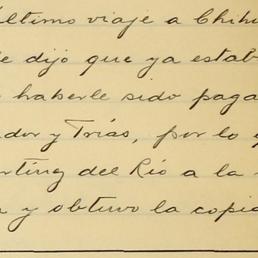 último viaje a Chihu
e dijo que ya estab
haberle sido paga
dor y Trías, por lo q
rting del Río a la
y obtuvo la copia